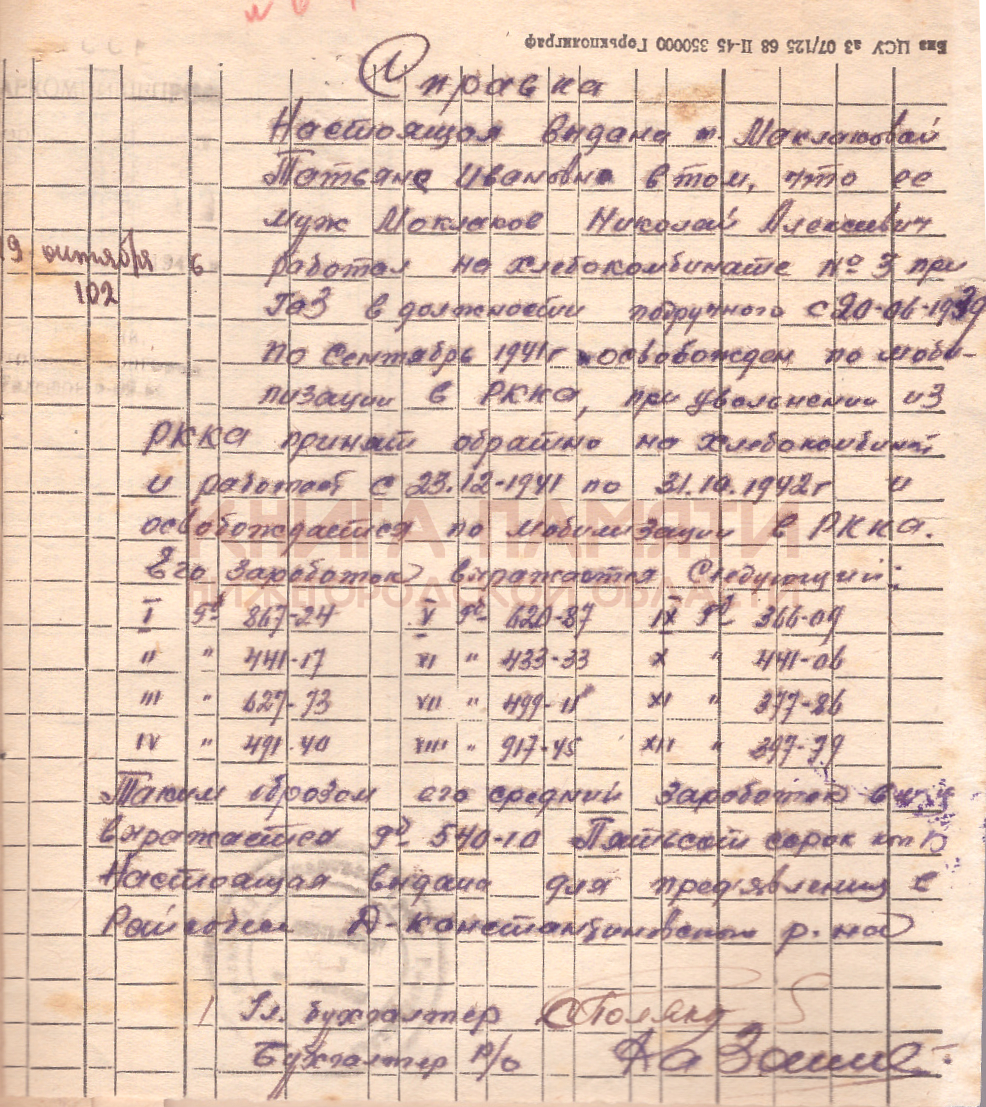 Бна ЦСУ аЗ 07/125 68 II-45 350000 Горькполиграф
Справка
Настоящая выдана т. Маклаковой
Татьяне Ивановне в том, что ее
муж Моклаков Николай Алексеевич
19 октября 6 работал на хлебокомбинате № 3 при
102 ГаЗ в должности подручного с 20-06-1939
по Сентябрь 1941г освобожден по моби-
лизации в РККА, при увольнении из
РККА принят обратно на хлебокомбинат
и работает с 23.12-1941 по 31.10.1942г и
освобождается по мобилизации в РККА.
КНИГА ПАМЯТИ
Его Зароботок выражается Следующий:
НИЖЕГОРОДСКОЙ ОБЛАСТИ
I 867-24 V 620-87 IX 366-09
II " 441-17 VI " 433-33 X " 441-06
III " 627-73 VII " 499-11 XI " 377-86
IV " 491-40 VIII " 917-45 XII " 397-79
Таким образом его средний Зароботок в
выражается 540-10 Пятьсот сорок коп 10
Настоящая выдана для предявления с
Райсобес Д-константиновском р-на
Гл. бухгалтер
Бухгалтер Р/о